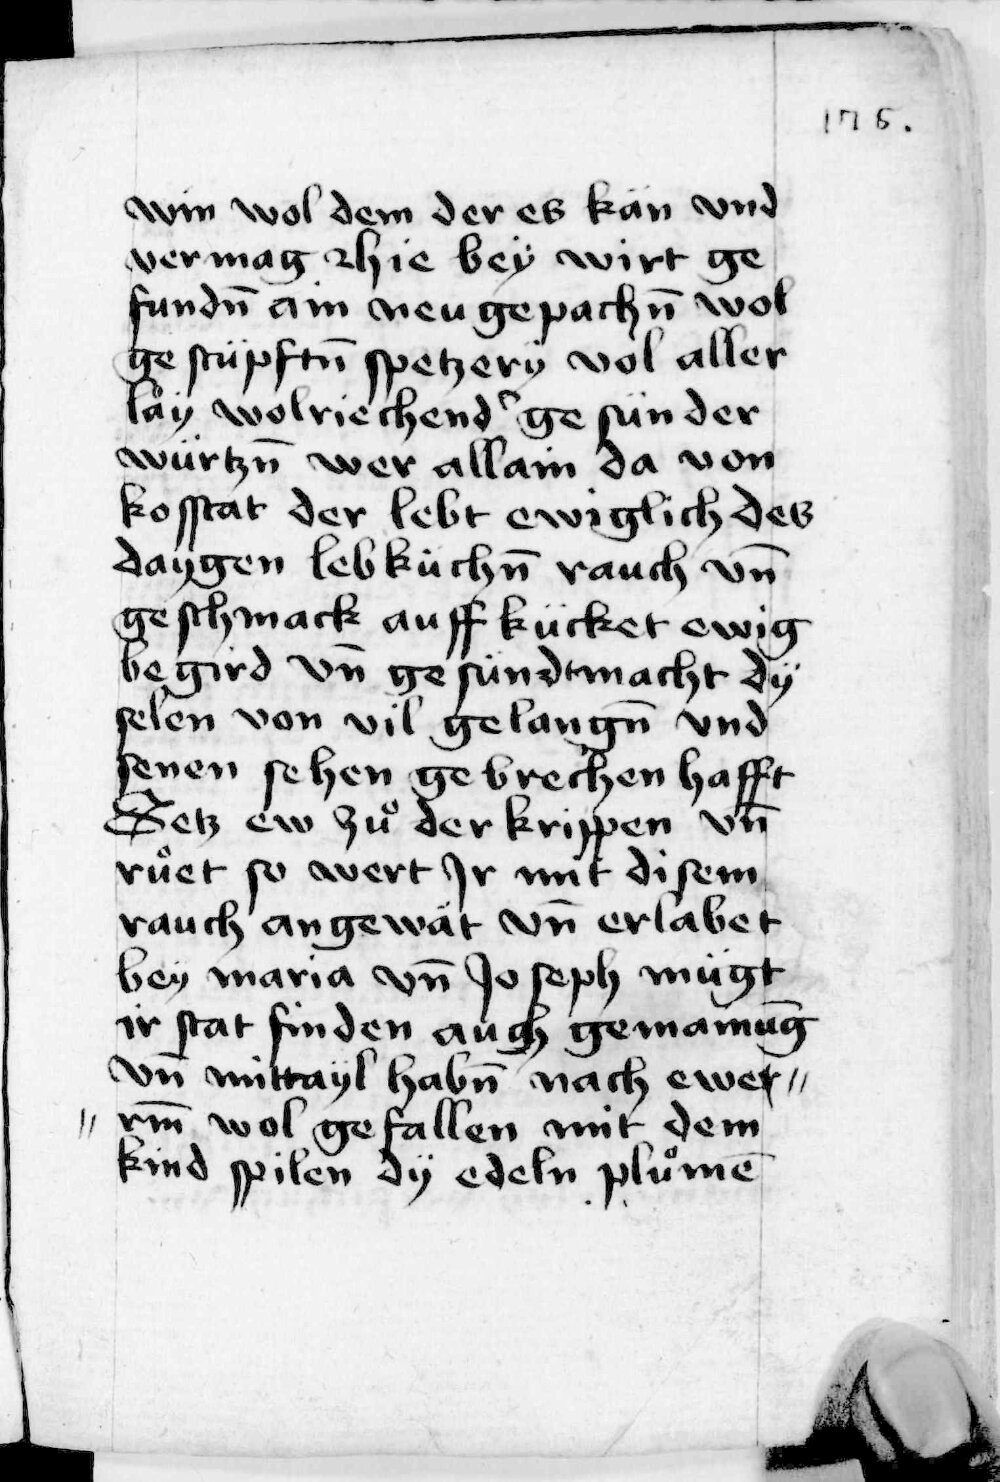 176.
win wol dem der es kän vnd
vermag Hhie beÿ wirt ge
fundn̄ ain neu gepachn̄ wol
ge stüpftn̄ spetzerÿ vol aller
laͤy wolriechend͛ ge sünder
würtzn̄ wer allain da von
kosstat der lebt ewiglich des
daÿgen lebküchn̄ rauch vn̄
geschmack auff kücket ewig
begird vn̄ ge sündtmacht dÿ
selen von vil gelangn̄ vnd
senen sehen gebrechen hafft
Setz ew zuͦ der krippen vn̄
ruͦet so wert Jr mit disem
rauch angewät vn̄ erlabet
bey maria vn̄ Joseph mügt
ir stat finden auch gemainūg
vn̄ mittayl habn̄ nach ewer //
// rm̄ wol gefallen mit dem
kind spilen dÿ edeln pluͦmē